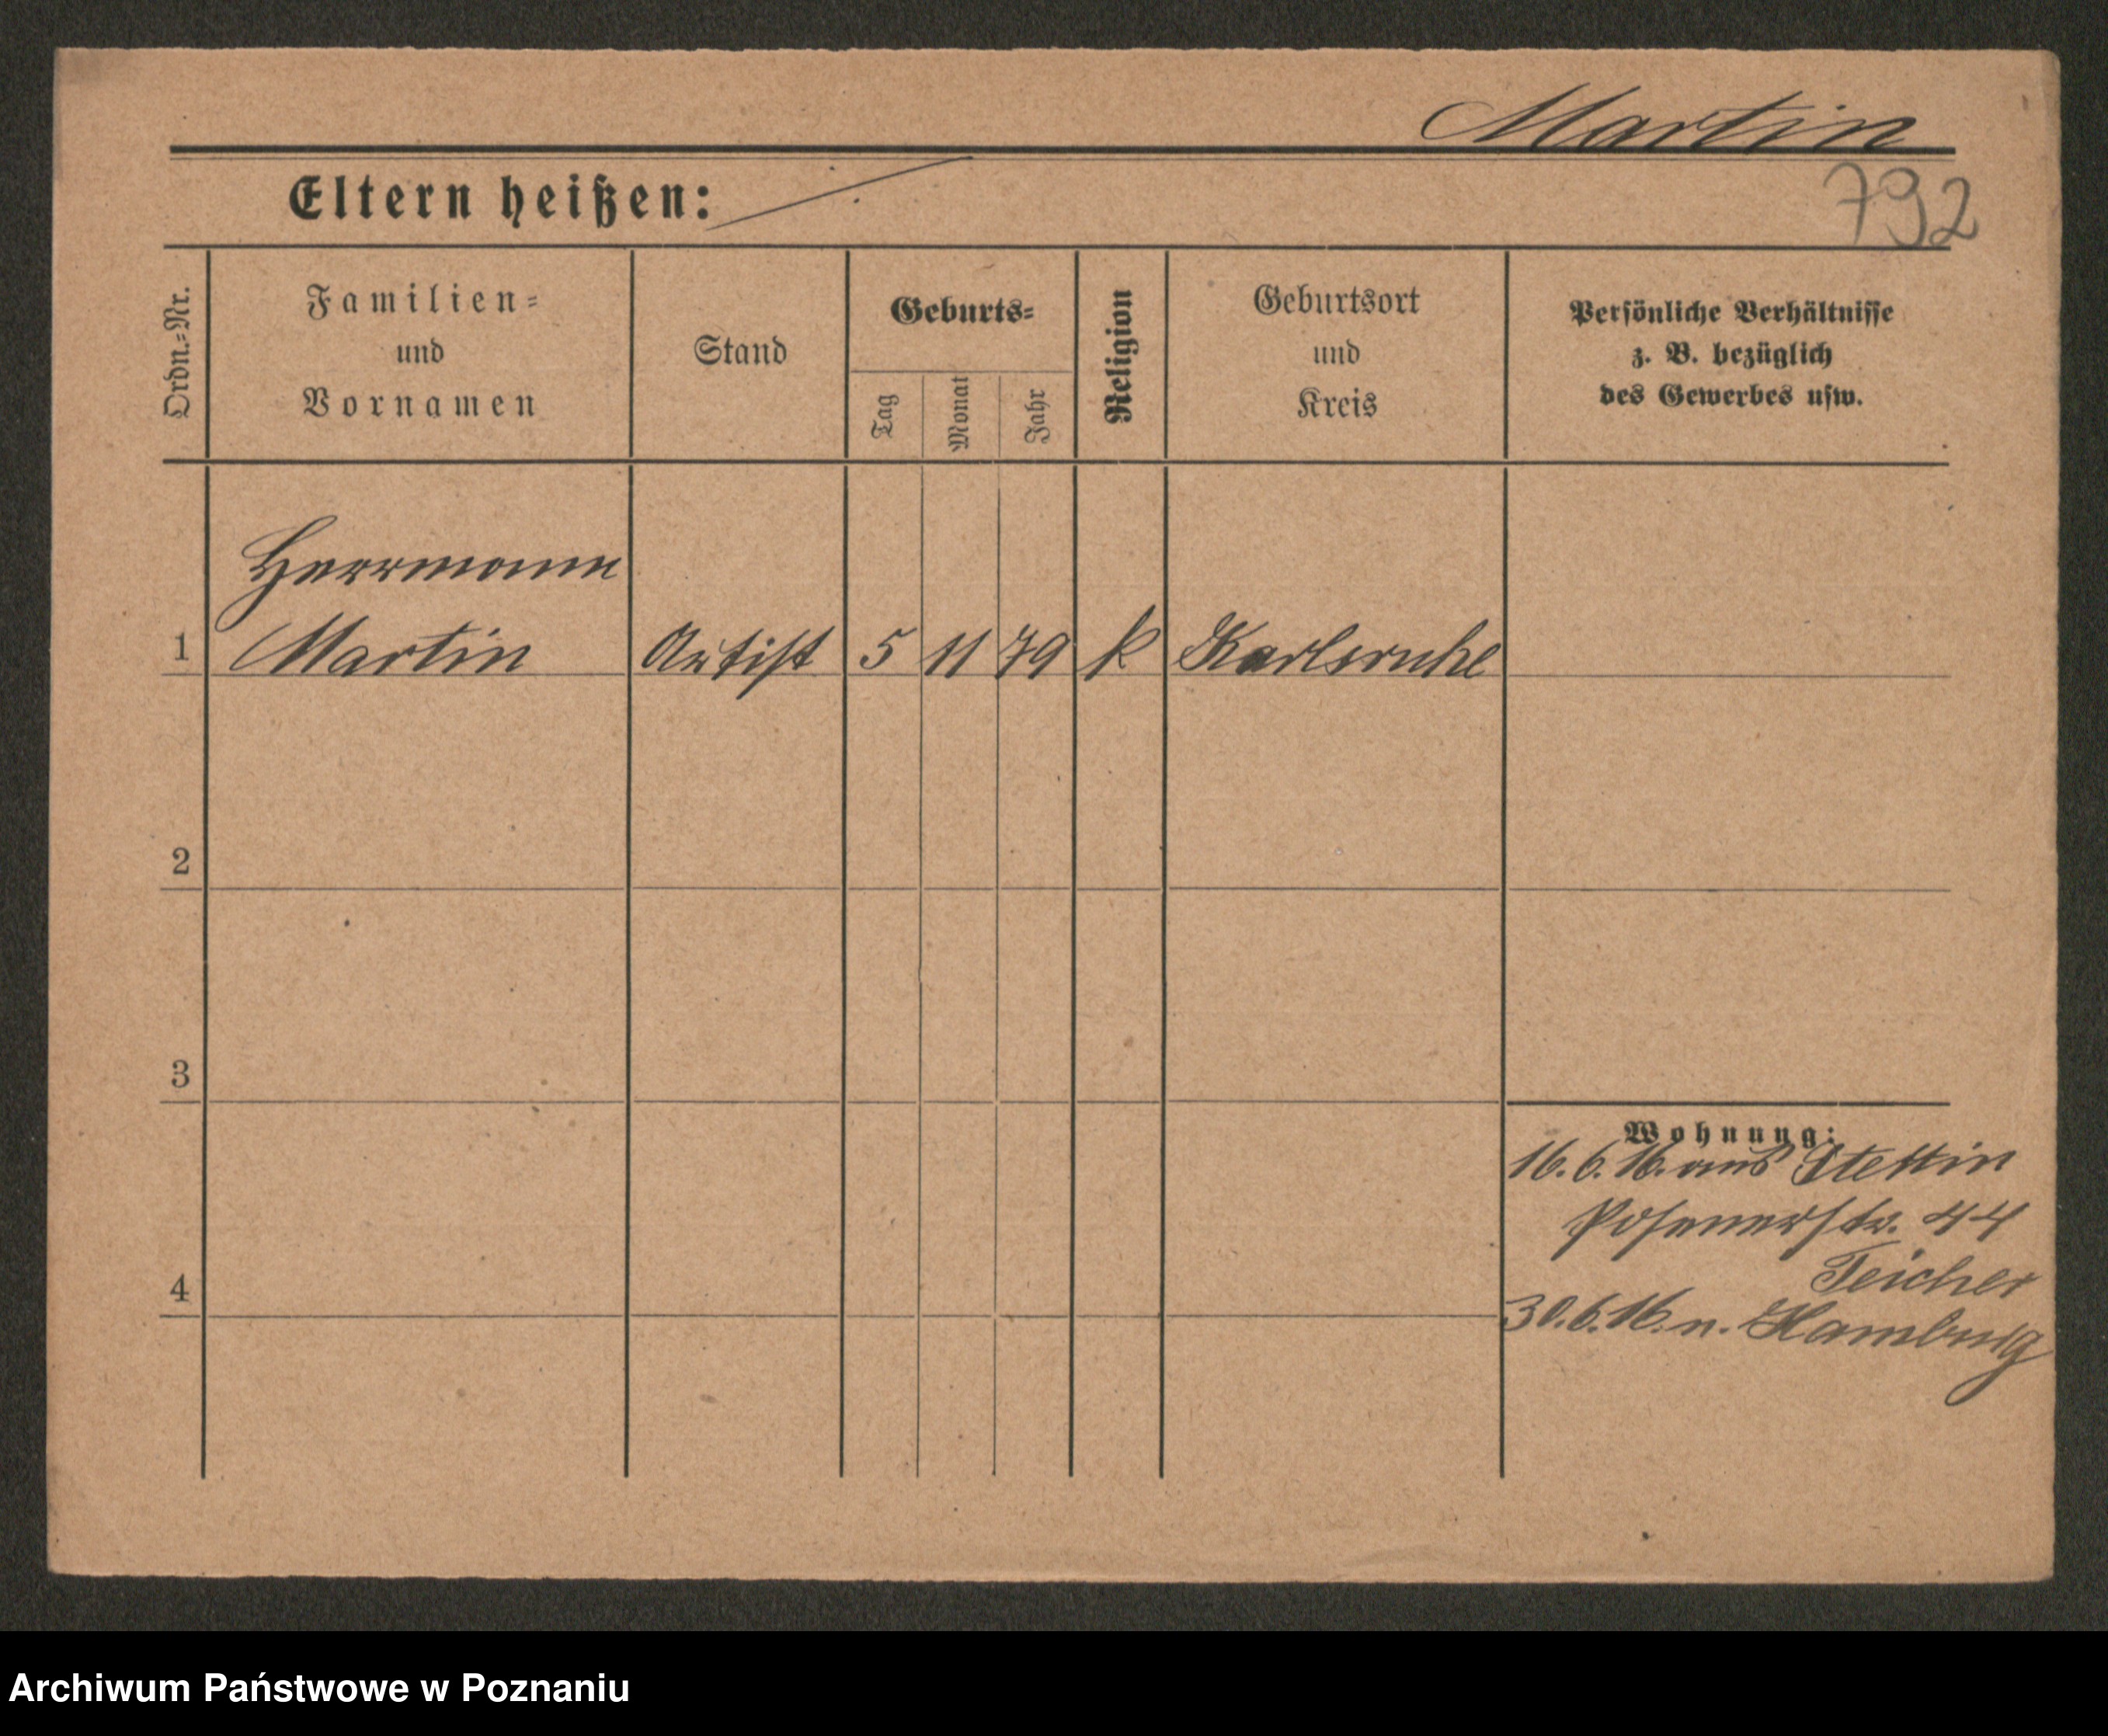 Martin
Eltern heißen:
792
Ordn.-Nr.
Familien-
und
Vornamen
Stand
Geburts-
Tag
Monat
Jahr
Religion
Geburtsort
und
Kreis
Persönliche Verhältnisse
z. B. bezüglich
des Gewerbes usw.
Herrmann
1 Martin Artist 5 11 79 k Karlsruhe
2
3
Wohnung:
16.6.16. aus Stettin
Posenerstr. 44
Teicher
4
30.6.16. n. Hamburg
Archiwum Państwowe w Poznaniu